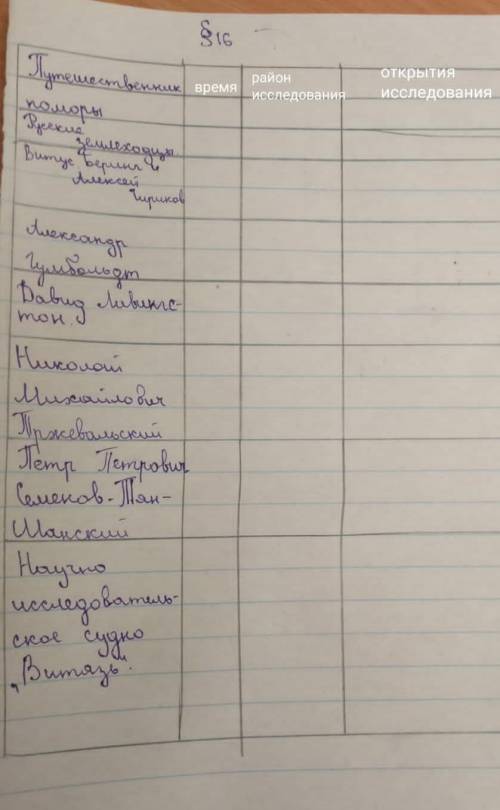 §
§ 16
Путешественник
время
район
исследования
открытия
исследования
поморы
Русские
землеходцы
Витус Беринг и
Алексей
Чириков
Александр
Гумбольдт
Давид Ливингс-
тон.
Николай
Михайлович
Пржевальский
Пётр Петрович
Семенов-Тян-
Шанский
Научно
исследователь-
ское судно
„Витязь".